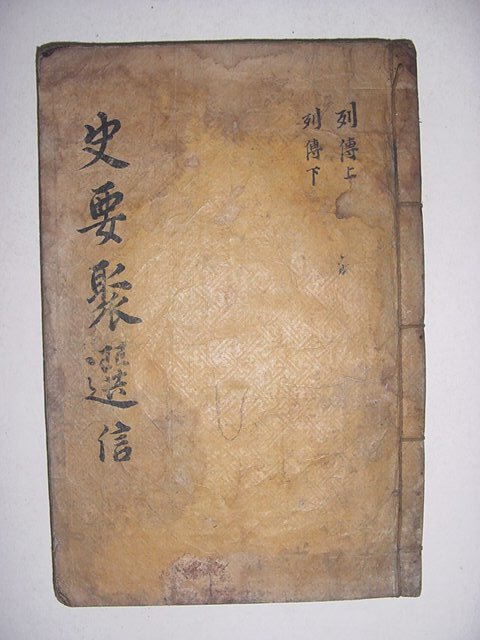 列傳上
列傳下
史要聚選信